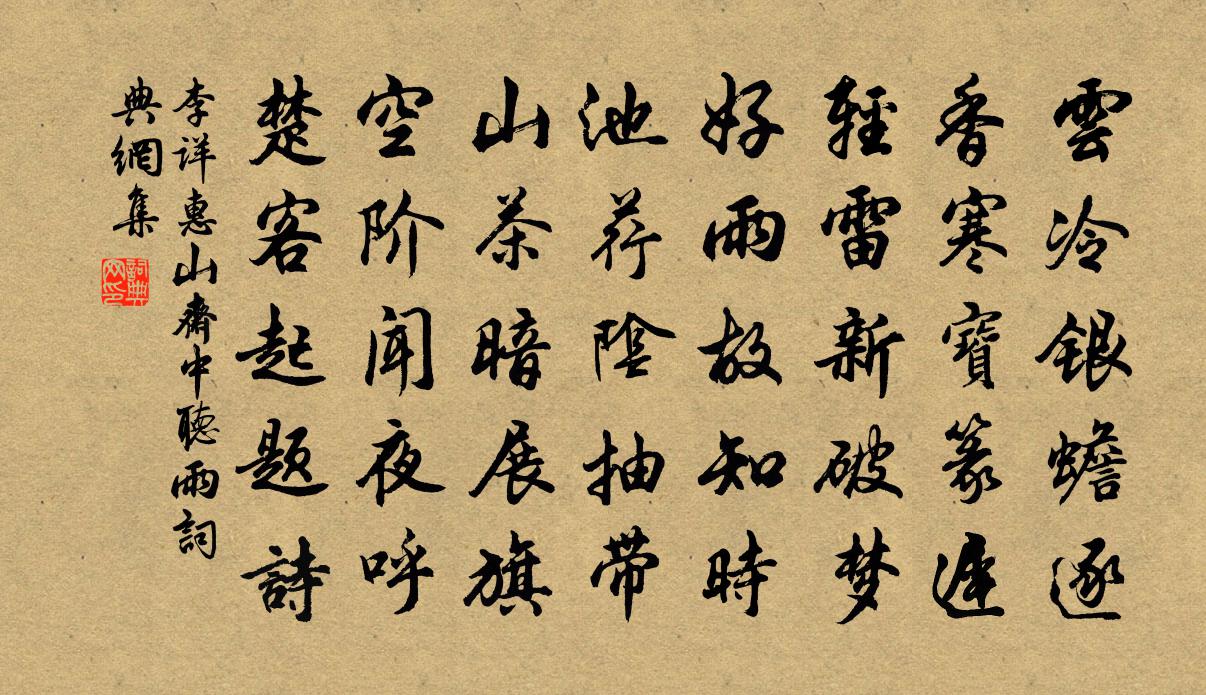 雲冷銀蟾逐
香寒寶篆遲
輕雷新破梦
好雨故知時
池荇陰抽带
山茶暗展旗
空阶闻夜呼
楚客起题詩
李详惠山齋中聽雨詞
典網集
詞典
网印